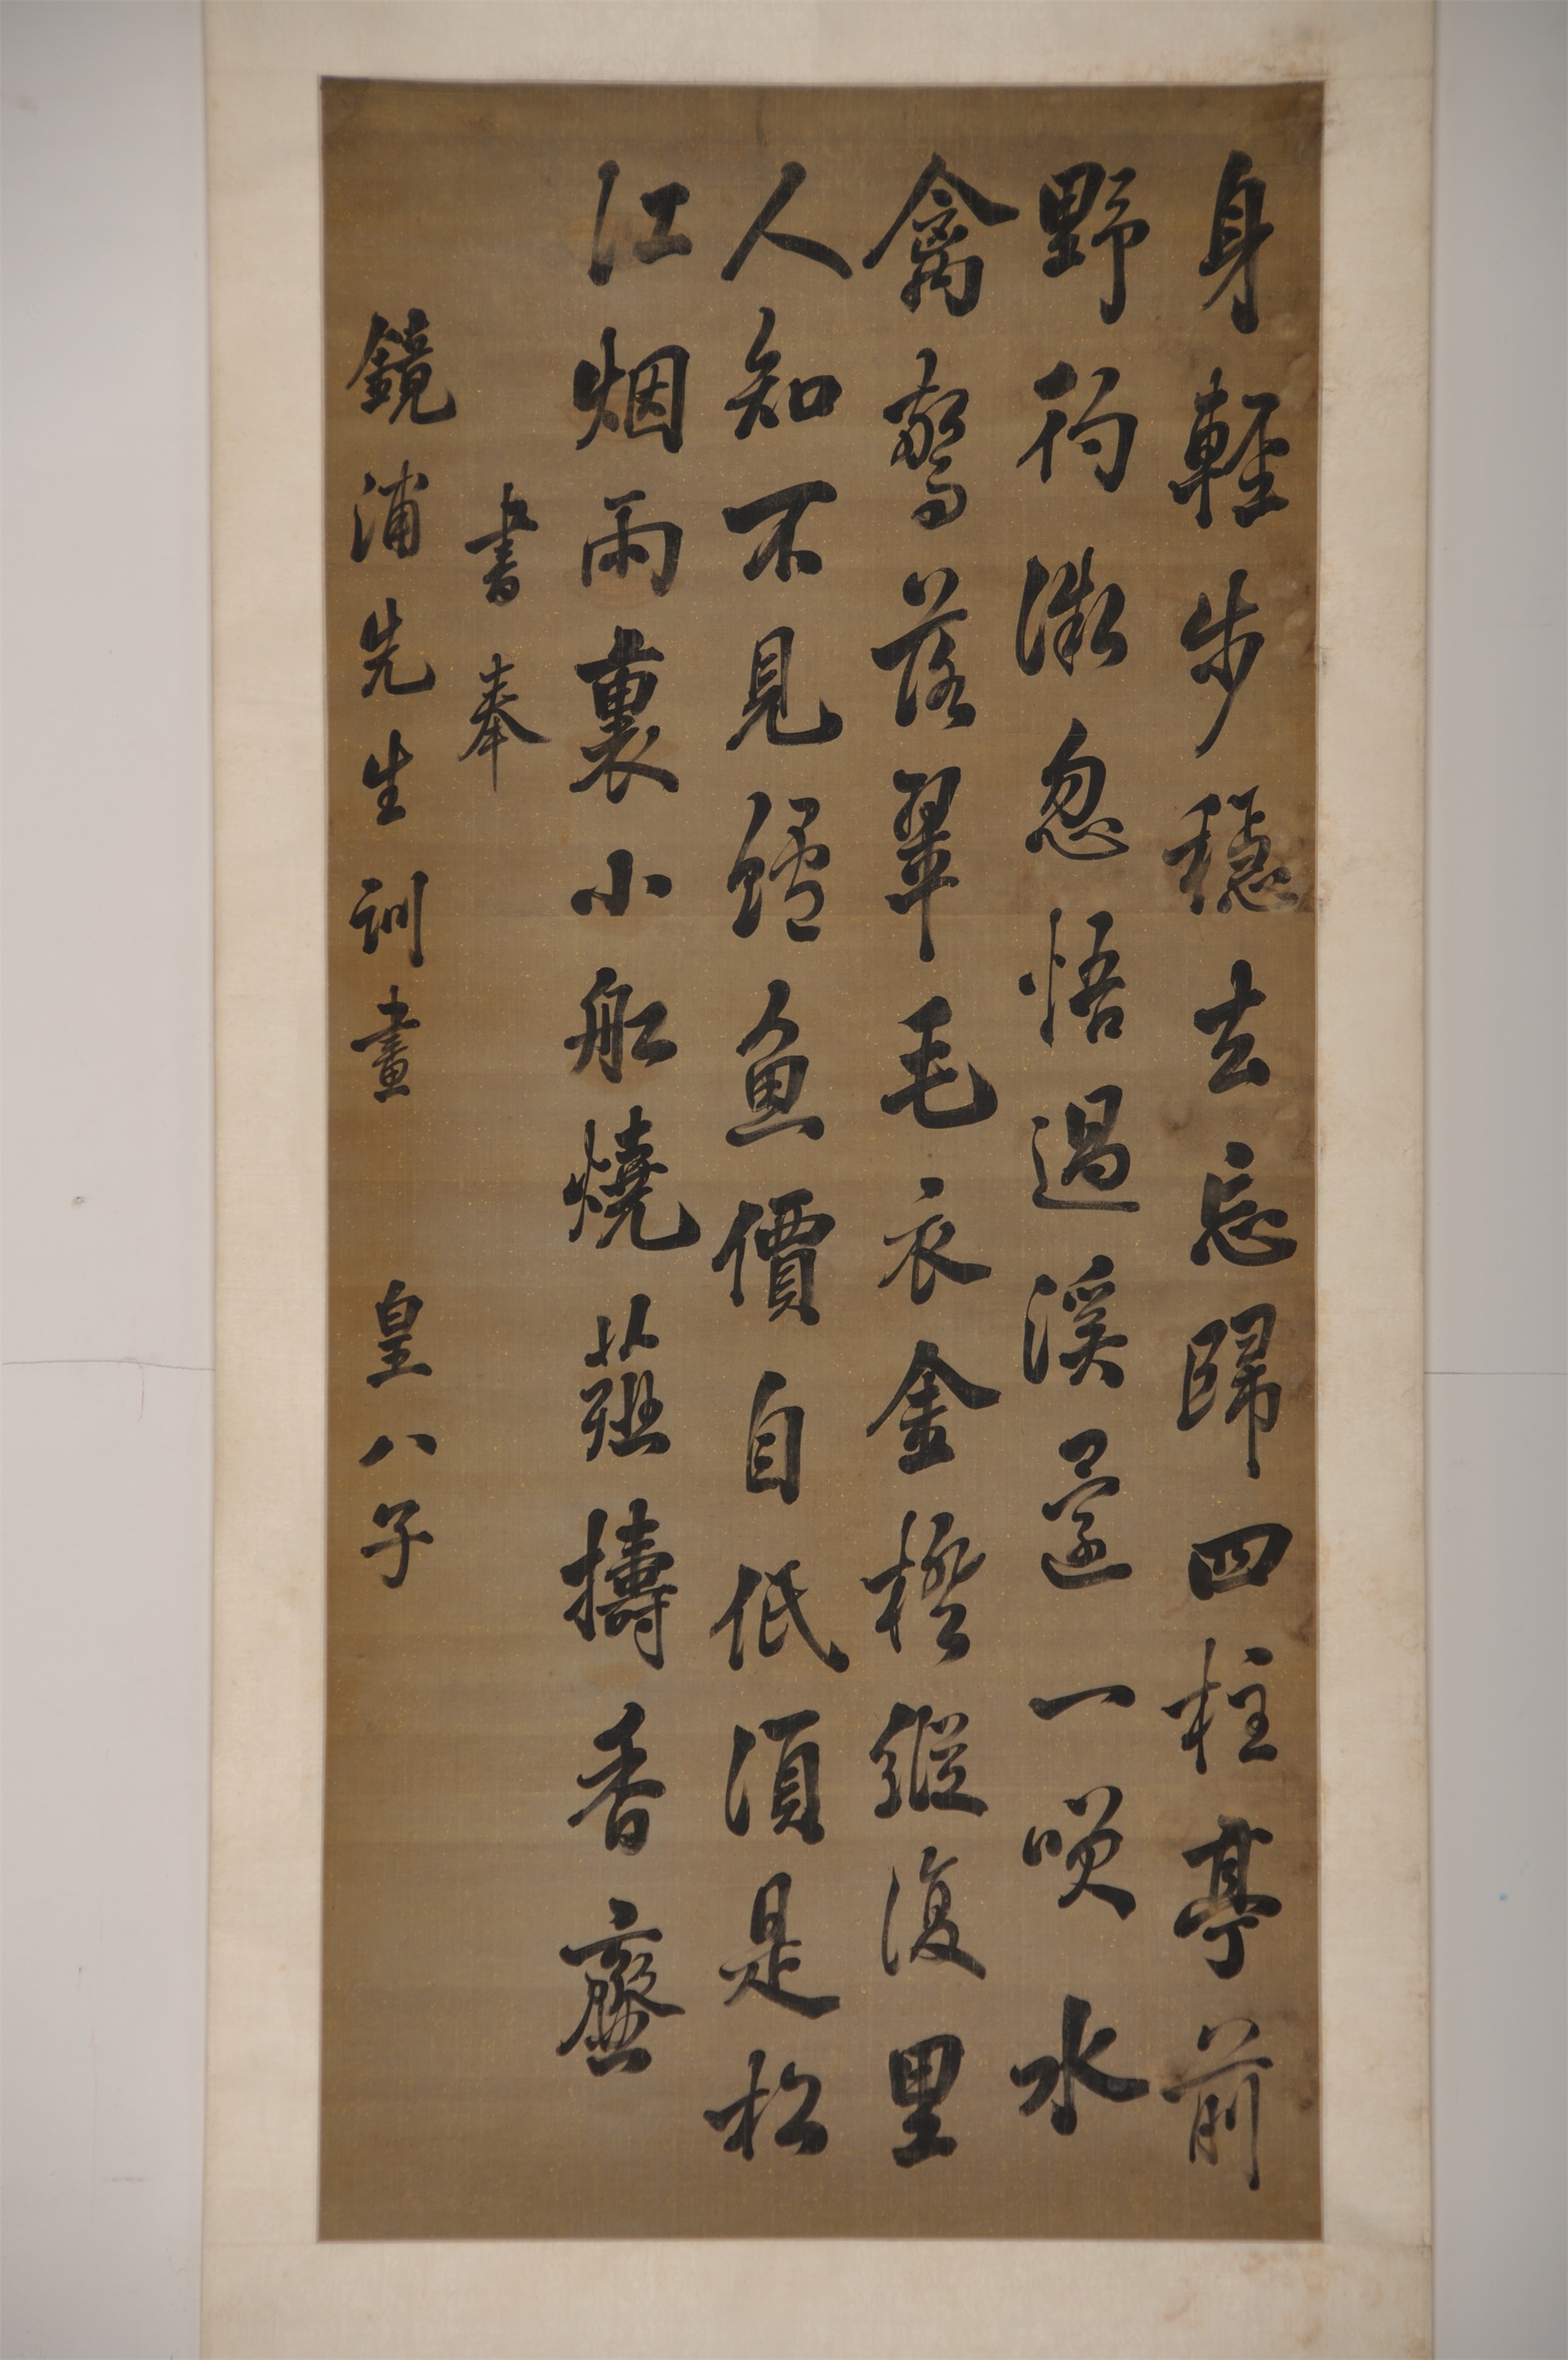 身輕步穩去忘歸四柱亭前
野彴微忽悟過溪還一咲水
禽驚落翠毛衣金橙縱復里
人知不見鱸魚價自低須是松
江烟雨裏小舡燒薤擣香齏
書奉
鏡浦先生訓畫 皇八子